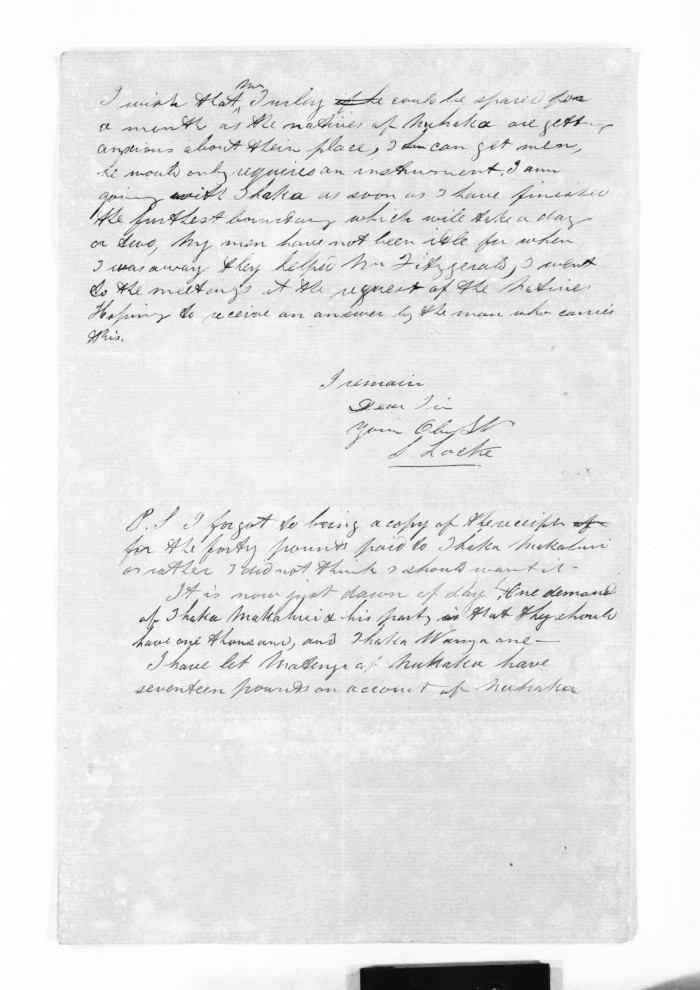 I wish that Mr Turley if he could be spared for
a month as the natives of Nuhaka are getting
anxious about their place, I can get men,
he would only requires an instrument. I am
going with Ihaka as soon as I have finished
the furthest boundary which will take a day
or two, My men have not been idle for when
I was away they helped Mr Fitzgerald, I went
to the meetings at the request of the Natives
Hoping to receive an answer by the man who carries
this.
I remain
Dear Sir
Your Obt St
S Locke
P.S I forgot to bring a copy of the receipt of
for the forty pounds paid to Ihaka
or rather I did not think I should want it-
It is now just dawn of day! One demand
of Ihaka & his party is that they should
have one thousand, and Ihaka Wanga one-
I have let of Nuhaka have
seventeen pounds on account of Nuhaka